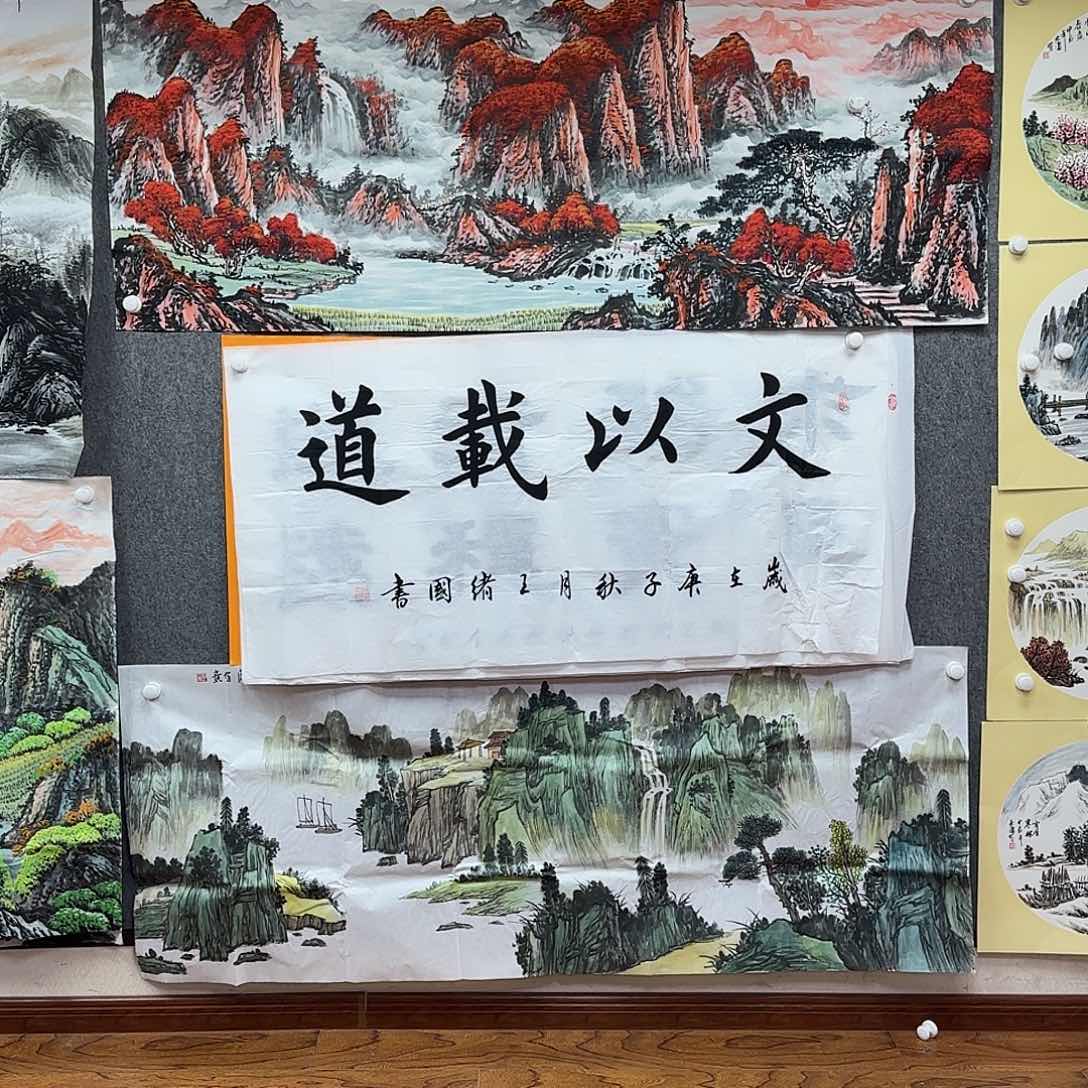 文以載道
歲在庚子秋月王緒國書